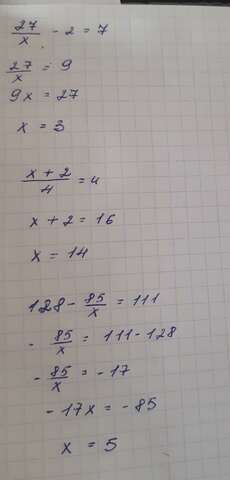 27/x - 2 = 7
27/x = 9
9x = 27
x = 3
x + 2/4 = 4
x + 2 = 16
x = 14
128 - 85/x = 111
- 85/x = 111 - 128
- 85/x = - 17
- 17x = - 85
x = 5